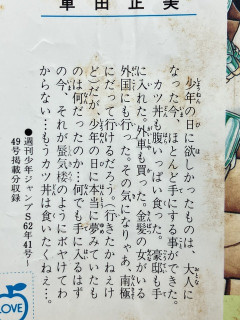 車田正美
少年の日に欲しかったものは、大人に
なった今、ほとんど手にする事ができた。
カツ丼も腹いっぱい食った。豪邸も手
に入れた。外車も買った。金髪の女がいる
外国にも行った。その気になりゃあ、南極
にだって行けるだろう。（行きたかねえけ
ど）だが、少年の日に本当に夢みていたも
のは何だったのか…何でも手に入るはず
の今、それが蜃気楼のようにボヤけてわ
からない…もうカツ丼は食いたくねえ…。
●週刊少年ジャンプS62年41号〜
49号掲載分収録
LOVE